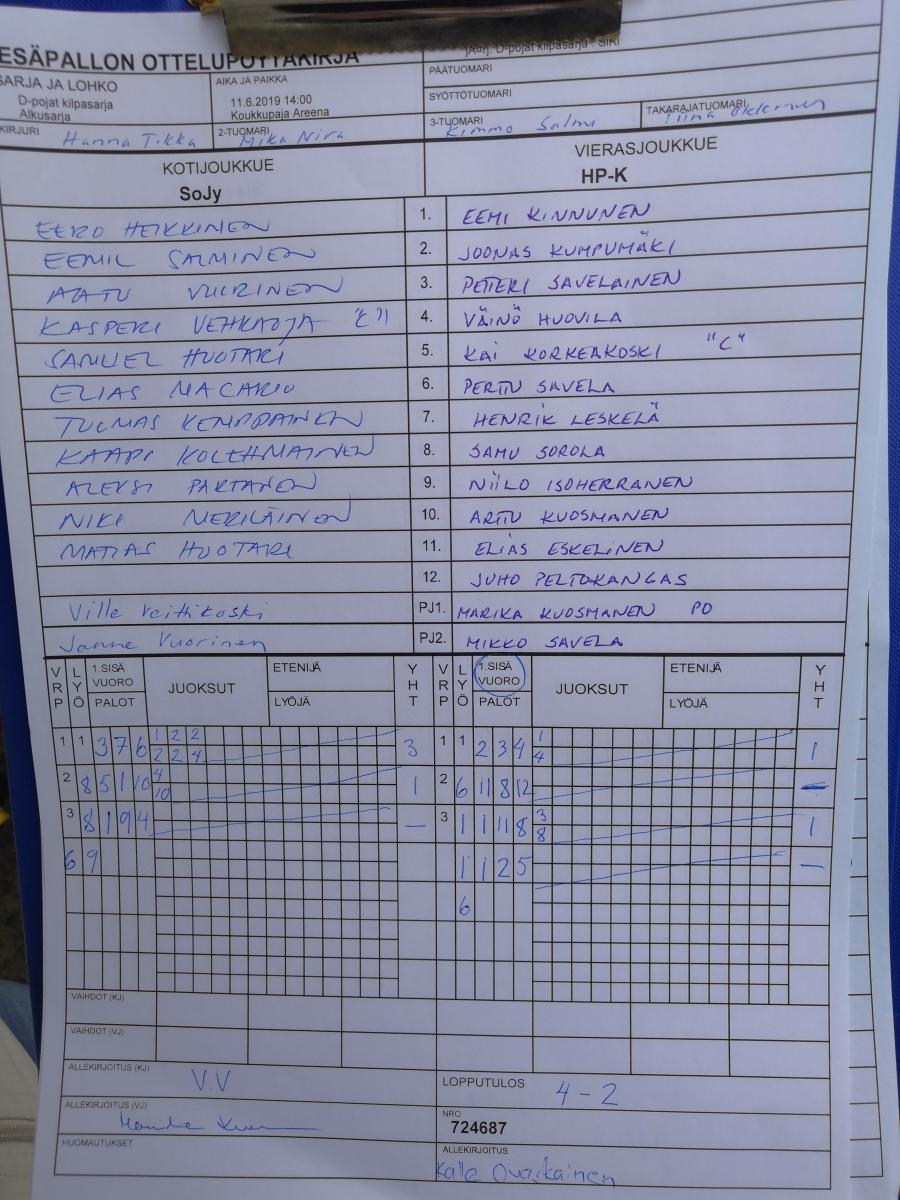 ESÄPALLON OTTELUPÖYTÄKIRJA
D-pojat kilpasarja - 
SARJA JA LOHKO
D-pojat kilpasarja
Alkusarja
AIKA JA PAIKKA
11.6.2019 14:00
Koukkupaja Areena
PÄÄTUOMARI
SYÖTTÖTUOMARI
KIRJURI Hanna Tikka
2-TUOMARI Mika Niva
3-TUOMARI Kimmo Salmi
TAKARAJATUOMARI Tiina
KOTIJOUKKUE
SoJy
VIERASJOUKKUE
HP-K
EERO HEIKKINEN 1. EEMI KINNUNEN
EEMIL SALMINEN 2. JOONAS KUMPUMÄKI
AATU VUORINEN 3. PETTERI SAVELAINEN
KASPERI VEHKAOJA "C" 4. VÄINÖ HUOVILA
SAMUEL HUOTARI 5. KAI KORKEAKOSKI "C"
ELIAS MACARIO 6. PERTTU SAVELA
TUOMAS KEMPPAINEN 7. HENRIK LESKELÄ
KAAPI KOLEHMAINEN 8. SAMU SOROLA
ALEKSI PARTANEN 9. NIILO ISOHERRANEN
NIKI MERILÄINEN 10. ARTTU KUOSMANEN
MATIAS HUOTARI 11. ELIAS ESKELINEN
12. JUHO PELTOKANGAS
Ville PJ1. MARIKA KUOSMANEN PO
Janne Vuorinen PJ2. MIKKO SAVELA
VRP LYÖ 1.SISÄ VUORO PALOT JUOKSUT ETENIJÄ LYÖJÄ YHT VRP LYÖ 1.SISÄ VUORO PALOT JUOKSUT ETENIJÄ LYÖJÄ YHT
1 1 3 7 6 1 2 2 3 1 1 2 3 4 1 1
2 2 4 4
2 8 5 1 10 4 1 2 6 11 8 12 -
10
3 8 1 9 4 - 3 1 1 11 8 3 1
8
6 9 1 1 2 5 -
6
VAIHDOT (KJ)
VAIHDOT (VJ)
ALLEKIRJOITUS (KJ) V.V
LOPPUTULOS 4-2
ALLEKIRJOITUS (VJ)
NRO
724687
HUOMAUTUKSET
ALLEKIRJOITUS
Kalle Ovaskainen